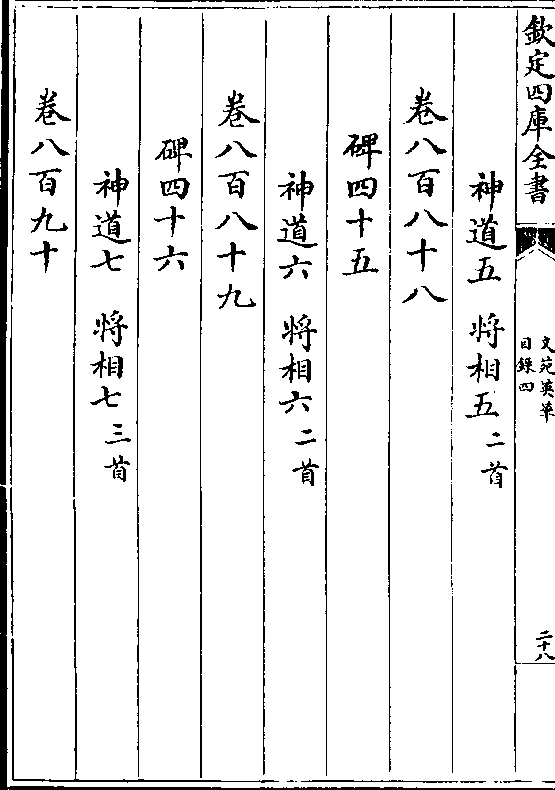 欽定四庫全書
文苑英華
目錄四
二十八
神道五 將相五 二首
卷八百八十八
碑四十五
神道六 將相六 二首
卷八百八十九
碑四十六
神道七 將相七 三首
卷八百九十